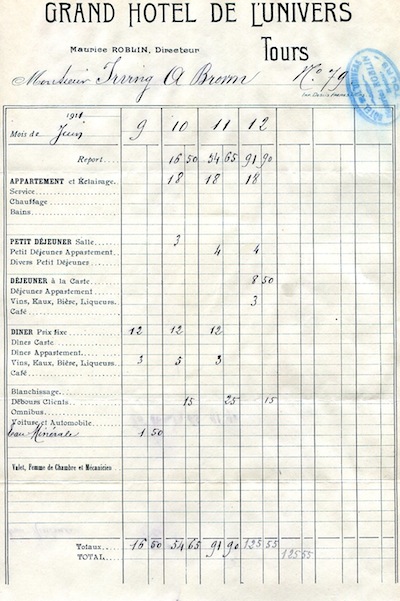 GRAND HOTEL DE L'UNIVERS
Maurice ROBLIN, Directeur
Tours
Monsieur Irving A Brown No 79
1911
Mois de Juin 9 10 11 12
Report 16 50 54 65 91 90
APPARTEMENT et Éclairage 18 18 18
Service
Chauffage
Bains
PETIT DÉJEUNER Salle 3
Petit Déjeunes Appartement 4 4
Divers Petit Déjeunes
DÉJEUNER à la Carte 8 50
Déjeunes Appartement
Vins, Eaux, Bière, Liqueurs 3
Café
DINER Prix fixe 12 12 12
Dines Carte
Dines Appartement
Vins, Eaux, Bière, Liqueurs 3 5 3
Café
Blanchissage
Débours Clients 15 25 15
Omnibus
Voiture et Automobile
Eau Minérale 1 50
Valet, Femme de Chambre et Mécanicien
Totaux 16 50 54 65 91 90 125 55
TOTAL 125 55